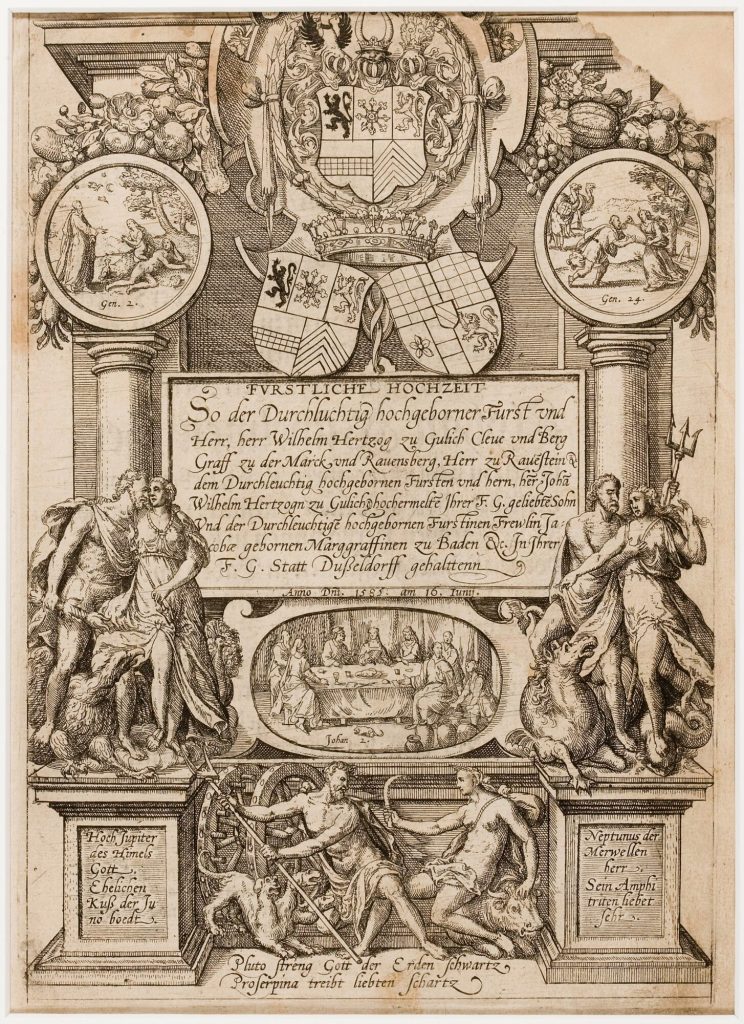 Gen. 2.
Gen. 24.
FVRSTLICHE HOCHZEIT
So der Durchluchtig hochgeborner Furst vnd
Herr, herr Wilhelm Hertzog zu Gulich Cleue vnd Berg
Graff zu der Marck vnd Rauensberg, Herr zu Rauēstein &
dem Durchleuchtig hochgebornen Fursten vnd hern, her Johā
Wilhelm Hertzogn zu Gulich hochermeltē Jhrer F. G. geliebtē Sohn
Vnd der Durchleuchtigē hochgebornen Furstinen Frewlin Ja⸗
cobæ gebornen Marggraffinen zu Baden &c. Jn Jhrer
F. G. Statt Dußeldorff gehalttenn
Anno Dni. 1585. am 16. Iunij.
Johan 2.
Hoch Jupiter
des Himels
Gott.
Ehelichen
Kuß der Ju
no boedt.
Neptunus der
Merwellen
herr
Sein Amphi
triten liebet
sehr.
Pluto streng Gott der Erden schwartz
Proserpina treibt liebten schartz